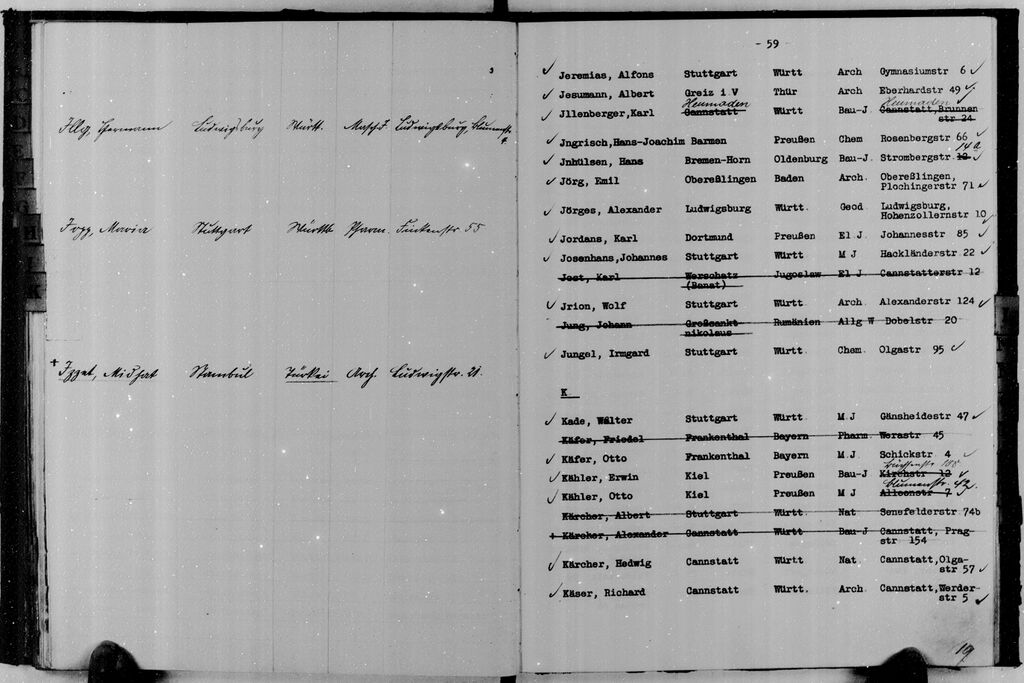 Illg, Hermann Ludwigsburg Württ. Masch.I. Ludwigsburg, Blumenstr.
4
Jopp, Maria Stuttgart Württ. Pharm. Tückenstr 55
+ Izzet, Midhat Stambul Türkei Arch. Ludwigstr. 21.
- 59 -
✓ Jeremias, Alfons Stuttgart Württ Arch Gymnasiumstr 6 ✓
✓ Jesumann, Albert Greiz i.V Thür Arch Eberhardstr 49 ✓
Heumaden Heumaden
✓ Jllenberger,Karl Cannstatt Württ Bau-J Cannstatt,Brunnen
str 24
✓ Jngrisch,Hans-Joachim Barmen Preußen Chem Rosenbergstr 66 ✓
14a
✓ Jnhülsen, Hans Bremen-Horn Oldenburg Bau-J. Strombergstr 12 ✓
✓ Jörg, Emil Obereßlingen Baden Arch. Obereßlingen,
Plochingerstr 71 ✓
✓ Jörges, Alexander Ludwigsburg Württ. Geod. Ludwigsburg,
Hohenzollernstr 10 ✓
✓ Jordans, Karl Dortmund Preußen El J. Johannesstr 85 ✓
✓ Josenhans,Johannes Stuttgart Württ M J Hackländerstr 22 ✓
Jost, Karl Werschetz Jugoslaw El J Cannstatterstr 12
(Banat)
✓ Jrion, Wolf Stuttgart Württ Arch. Alexanderstr 124 ✓
Jung, Johann Großsankt- Rumänien Allg W Dobelstr 20
nikolaus
✓ Jungel, Irmgard Stuttgart Württ. Chem. Olgastr 95 ✓
K
✓ Kade, Walter Stuttgart Württ M J Gänsheidestr 47 ✓
Käfer, Friedel Frankenthal Bayern Pharm Werastr 45
✓ Käfer, Otto Frankenthal Bayern M.J. Schickstr 4 ✓
Büchsenstr 105
✓ Kähler, Erwin Kiel Preußen Bau-J Kirchstr 12 ✓
Blumenstr. 42
✓ Kähler, Otto Kiel Preußen M J Alleenstr 7 ✓
Kärcher, Albert Stuttgart Württ Nat Sensfelderstr 74b
+ Kärcher, Alexander Cannstatt Württ Bau-J Cannstatt, Prag-
str 154
✓ Kärcher, Hedwig Cannstatt Württ Nat Cannstatt,Olga-
str 57 ✓
✓ Käser, Richard Cannstatt Württ. Arch Cannstatt,Werder-
str 5 ✓
19